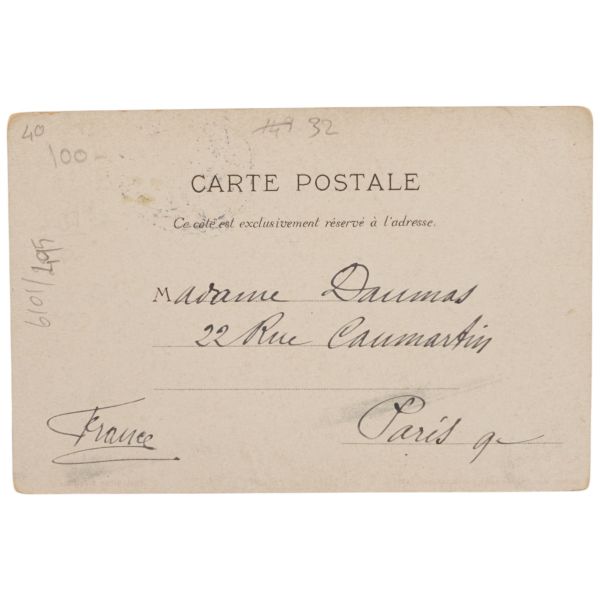 40
32
100-
CARTE POSTALE
Ce côté est exclusivement réservé à l'adresse.
Madame Daumas
22 Rue Caumartin
France
Paris 9e